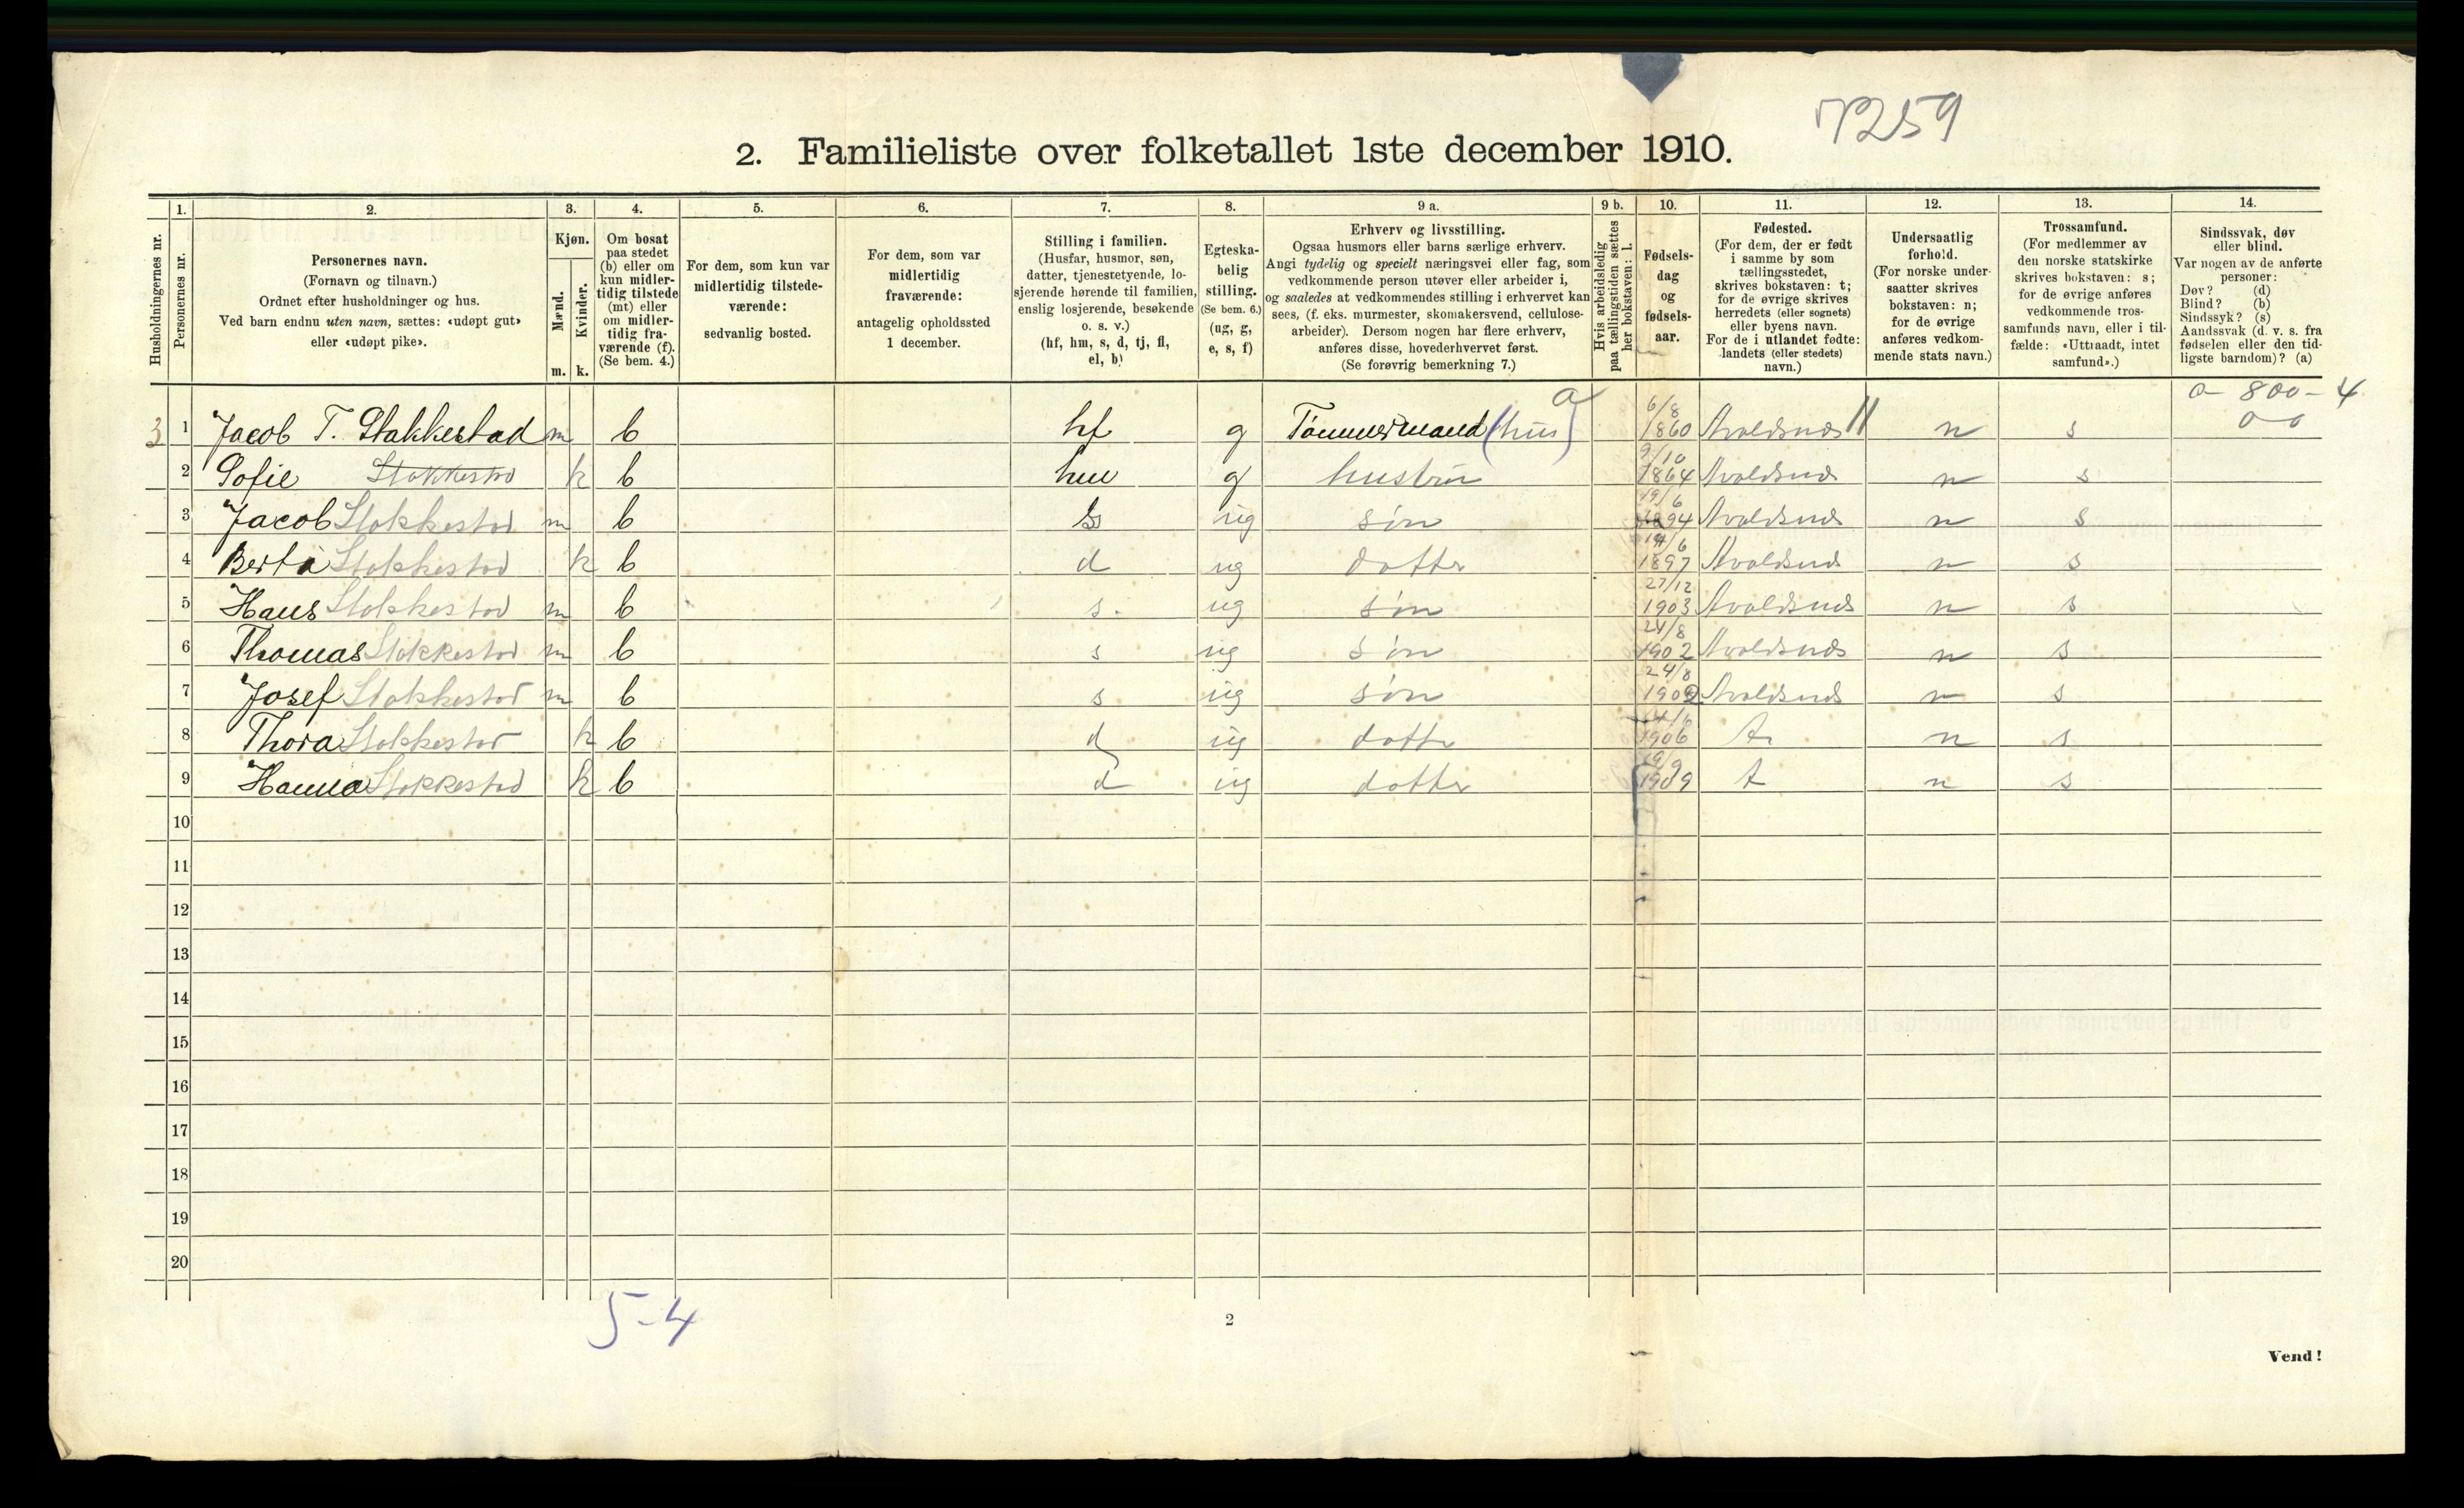 7259
2. Familieliste over folketallet 1ste december 1910.
1. 2. 3. 4. 5. 6. 7. 8. 9 a. 9 b. 10. 11. 12. 13. 14.
Husholdningernes nr.
Personernes nr.
Personernes navn.
(Fornavn og tilnavn.)
Ordnet efter husholdninger og hus.
Ved barn endnu uten navn, sættes: «udøpt gut»
eller «udøpt pike».
Kjøn.
Mænd.
Kvinder.
m. k.
Om bosat
paa stedet
(b) eller om
kun midler-
tidig tilstede
(mt) eller
om midler-
tidig fra-
værende (f).
(Se bem. 4.)
For dem, som kun var
midlertidig tilstede-
værende:
sedvanlig bosted.
For dem, som var
midlertidig
fraværende:
antagelig opholdssted
1 december.
Stilling i familien.
(Husfar, husmor, søn,
datter, tjenestetyende, lo-
sjerende hørende til familien,
enslig losjerende, besøkende
o. s. v.)
(hf, hm, s, d, tj, fl,
el, b)
Egteska-
belig
stilling.
(Se bem. 6.)
(ug, g,
e, s, f)
Erhverv og livsstilling.
Ogsaa husmors eller barns særlige erhverv.
Angi tydelig og specielt næringsvei eller fag, som
vedkommende person utøver eller arbeider i,
og saaledes at vedkommendes stilling i erhvervet kan
sees, (f. eks. murmester, skomakersvend, cellulose-
arbeider). Dersom nogen har flere erhverv,
anføres disse, hovederhvervet først.
(Se forøvrig bemerkning 7.)
Hvis arbeidsledig
paa tællingstiden sættes
her bokstaven: l.
Fødsels-
dag
og
fødsels-
aar.
Fødested.
(For dem, der er født
i samme by som
tællingsstedet,
skrives bokstaven: t;
for de øvrige skrives
herredets (eller sognets)
eller byens navn.
For de i utlandet fødte:
landets (eller stedets)
navn.)
Undersaatlig
forhold.
(For norske under-
saatter skrives
bokstaven: n;
for de øvrige
anføres vedkom-
mende stats navn.)
Trossamfund.
(For medlemmer av
den norske statskirke
skrives bokstaven: s;
for de øvrige anføres
vedkommende tros-
samfunds navn, eller i til-
fælde: «Uttraadt, intet
samfund».)
Sindssvak, døv
eller blind.
Var nogen av de anførte
personer:
Døv? (d)
Blind? (b)
Sindssyk? (s)
Aandssvak (d. v. s. fra
fødselen eller den tid-
ligste barndom)? (a)
a 0 - 800 - 4
3 1 Jacob T. Stakkestad m b hf g Tømmermand (hus) 6/8 1860 Avaldsnes n s 0 0
2 Sofie Stakkestad k b hm g hustru 9/10 1864 Avaldsnes n s
3 Jacob Stokkestad m b s ug søn 19/6 1894 Avaldsnes n s
4 Berta Stokkestad k b d ug datter 14/6 1897 Avaldsnes n s
5 Hans Stokkestad m b s. ug søn 27/12 1903 Avaldsnes n s
6 Thomas Stokkestad m b s ug søn 24/8 1902 Avaldsnes n s
7 Josef Stokkestad m b s ug søn 24/8 1902 Avaldsnes n s
8 Thora Stokkestad k b d ug datter 1906 A n s
9 Hanna Stokkestad k b d ug datter 19/9 1909 A n s
10
11
12
13
14
15
16
17
18
19
20
5-4
2
Vend!